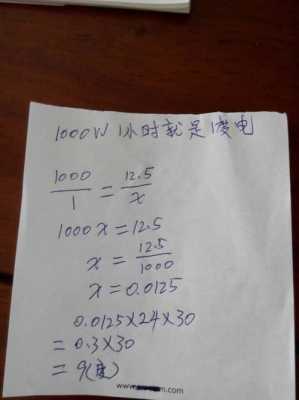 1000W 1小时就是1度电
1000/1 = 12.5/x
1000x=12.5
x = 12.5/1000
x = 0.0125
0.0125×24×30
= 0.3×30
= 9(度)
www.
.com